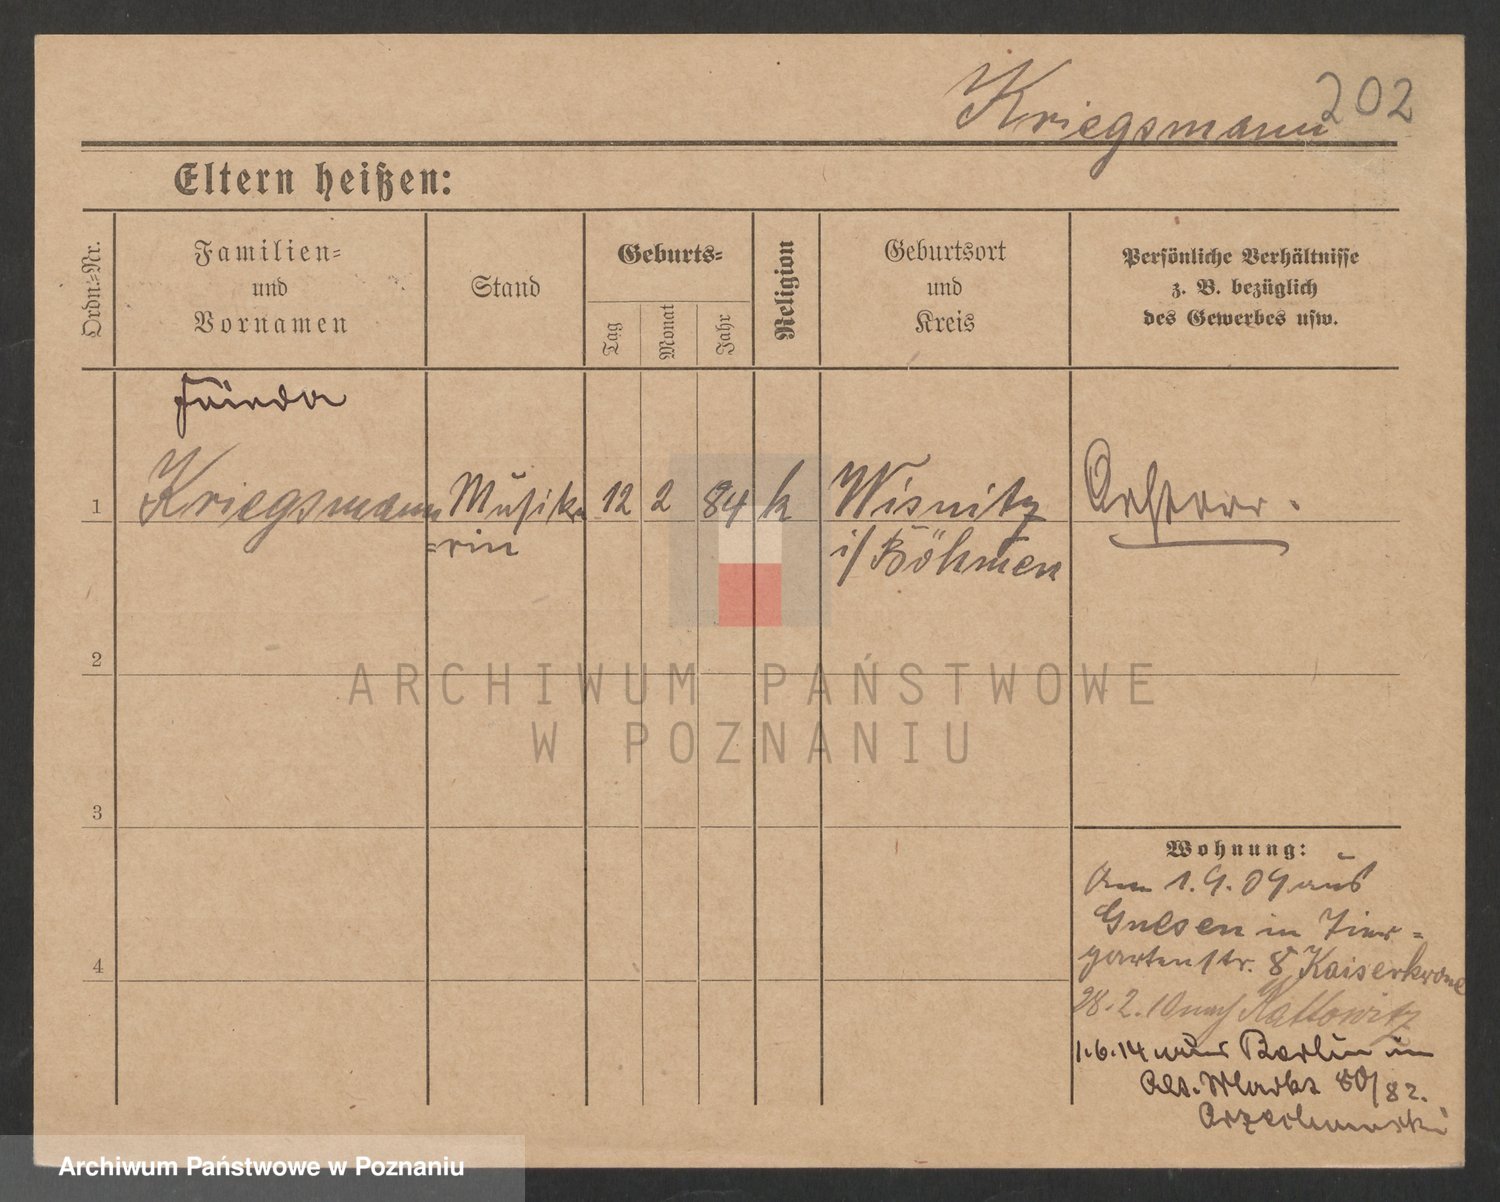 Kriegsmann
202
Eltern heißen:
Ordn.=Nr.
Familien=
und
Vornamen
Stand
Geburts=
Tag
Monat
Jahr
Religion
Geburtsort
und
Kreis
Persönliche Verhältnisse
z. B. bezüglich
des Gewerbes usw.
1
Kriegsmann
Musike
=rin
12
2
84
k
Wisnitz
i/ Böhmen
2
3
4
Wohnung:
Am 1.9.09 aus
Gnesen in Tier=
gartenstr. 8 Kaiserkrone
28.2.10 nach Kattowitz
1.6.14 aus Berlin in
Alt. Markt 80/82.
ARCHIWUM PAŃSTWOWE
W POZNANIU
Archiwum Państwowe w Poznaniu